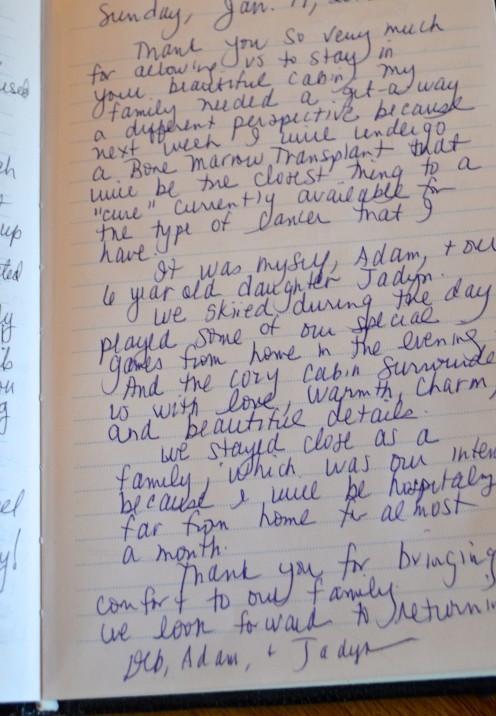 used
Sunday, Jan. 17,
Thank you so very much
for allowing us to stay in
your beautiful cabin. My
family needed a get-a-way
a different perspective because
next week I will undergo
a Bone Marrow Transplant that
will be the closest thing to a
"cure" currently available for
the type of cancer that I
have.
It was myself, Adam, + our
6 year old daughter Jadyn.
We skiied during the day
played some of our special
games from home in the evening
And the cozy cabin surrounde
us with love, warmth, charm,
and beautiful details.
We stayed close as a
family, which was our inten
because I will be hospitaliz
far from home for almost
a month.
Thank you for bringing
comfort to our family.
We look forward to returnin
Deb, Adam, + Jadyn
up